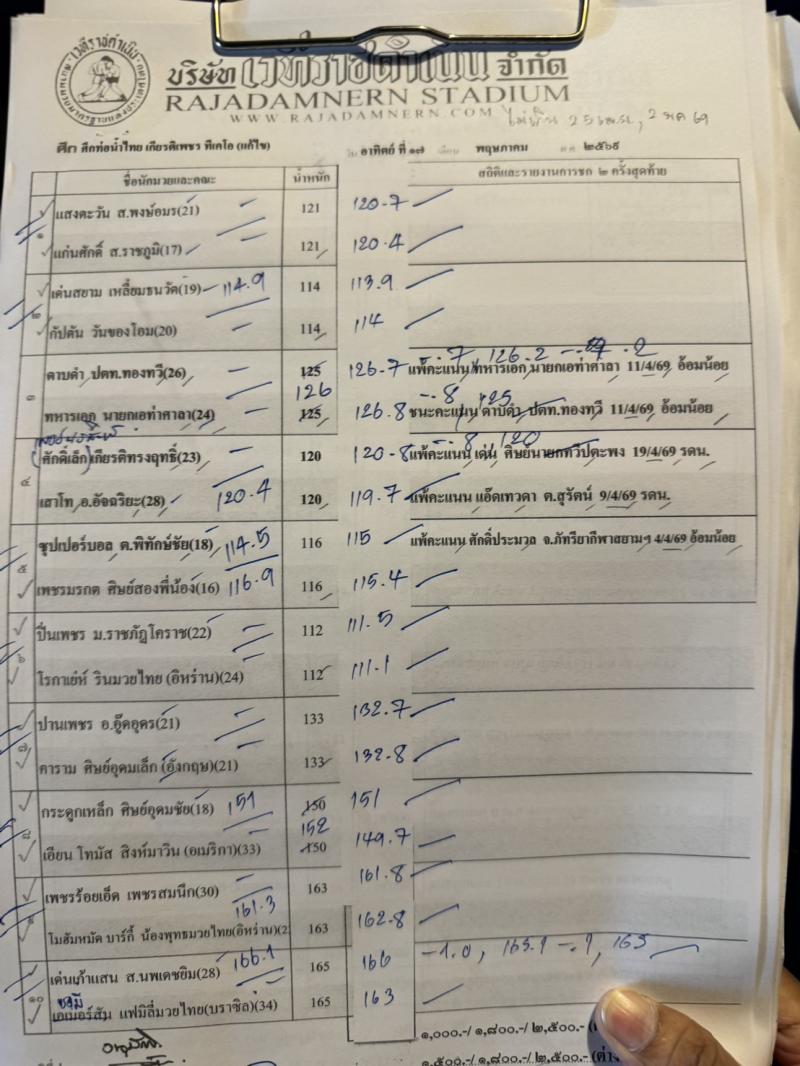 บริษัท เวทีราชดำเนิน จำกัด
RAJADAMNERN STADIUM
WWW.RAJADAMNERN.COM
ศึก ศึกท่อน้ำไทย เกียรติเพชร ทีเคโอ (แก้ไข) อาทิตย์ ที่ ๑๗ พฤษภาคม
ชื่อนักมวยและคณะ น้ำหนัก สถิติและรายงานการชก ๒ ครั้งสุดท้าย
แสงตะวัน ส.พงษ์อมร(21) 121 120.7
๑
แก่นศักดิ์ ส.ราชภูมิ(17) 121 120.4
เด่นสยาม เหลี่ยมธนวัต(19) 114.9 114 113.9
๒
กัปตัน วันของโอม(20) 114 114
ดาบดำ ปตท.ทองทวี(26) 125 126.7 แพ้คะแนน ทหารเอก นายกเอท่าศาลา 11/4/69 อ้อมน้อย
๓ 126
ทหารเอก นายกเอท่าศาลา(24) 125 126.8 ชนะคะแนน ดาบดำ ปตท.ทองทวี 11/4/69 อ้อมน้อย
ศักดิ์เล็ก เกียรติทรงฤทธิ์(23) 120 120-8 แพ้คะแนน เด่น ศิษย์นายกทวีปตะพง 19/4/69 รดน.
๔
เสาโท อ.อัจฉริยะ(28) 120.4 120 119.7 แพ้คะแนน แอ๊ดเทวดา ต.สุรัตน์ 9/4/69 รดน.
ซุปเปอร์บอล ต.พิทักษ์ชัย(18) 114.5 116 115 แพ้คะแนน ศักดิ์ประมวล จ.ภัทรียากีฬาสยามฯ 4/4/69 อ้อมน้อย
๕
เพชรมรกต ศิษย์สองพี่น้อง(16) 116.9 116 115.4
ปืนเพชร ม.ราชภัฏโคราช(22) 112 111.5
๖
โรกาเย่ห์ รินมวยไทย (อิหร่าน)(24) 112 111.1
ปานเพชร อ.อู๊ดอุดร(21) 133 132.7
๗
คาราม ศิษย์อุดมเล็ก (อังกฤษ)(21) 133 132.8
กระดูกเหล็ก ศิษย์อุดมชัย(18) 151 150 151
๘ 152
เอียน โทมัส สิงห์มาวิน (อเมริกา)(33) 150 149.7
เพชรร้อยเอ็ด เพชรสมนึก(30) 163 161.8
161.3
โมฮัมหมัด บาร์กี้ น้องพุทธมวยไทย(อิหร่าน)(2 163 162.8
เด่นเก้าแสน ส.นพเดชยิม(28) 166.1 165 166
๑๐
เอเมอร์สัน แฟมิลี่มวยไทย(บราซิล)(34) 165 163
๑,๐๐๐.-/ ๑,๘๐๐.-/ ๒,๕๐๐.-
๑,๕๐๐.-/ ๑,๘๐๐.-/ ๒,๕๐๐.- (ต่าง